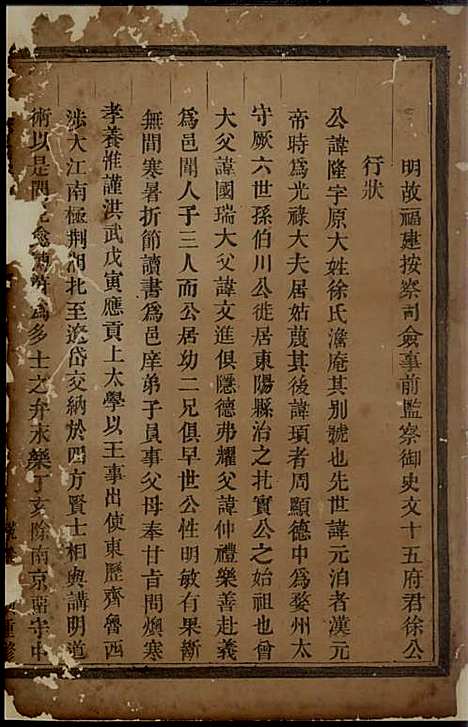 明故福建按察司僉事前監察御史文十五府君徐公
行狀
公諱隆字原大姓徐氏澹庵其別號也先世諱元洎者漢元
帝時爲光祿大夫居姑蔑其後諱頊者周顯德中爲婺州太
守厥六世孫伯川公徙居東陽縣治之北實公之始祖也曾
大父諱國瑞大父諱文進俱隱德弗耀父諱仲禮樂善赴義
爲邑聞人子三人而公居幼二兄俱早世公性明敏有果斷
無間寒暑折節讀書爲邑庠弟子員事父母奉甘旨問燠寒
孝養惟謹洪武戊寅應貢上太學以王事出使東歷齊魯西
涉大江南極荆湖北至遼岱交納於四方賢士相與講明道
術以是聞見愈 爲多士之弁永樂丁亥除南京留守中
重修